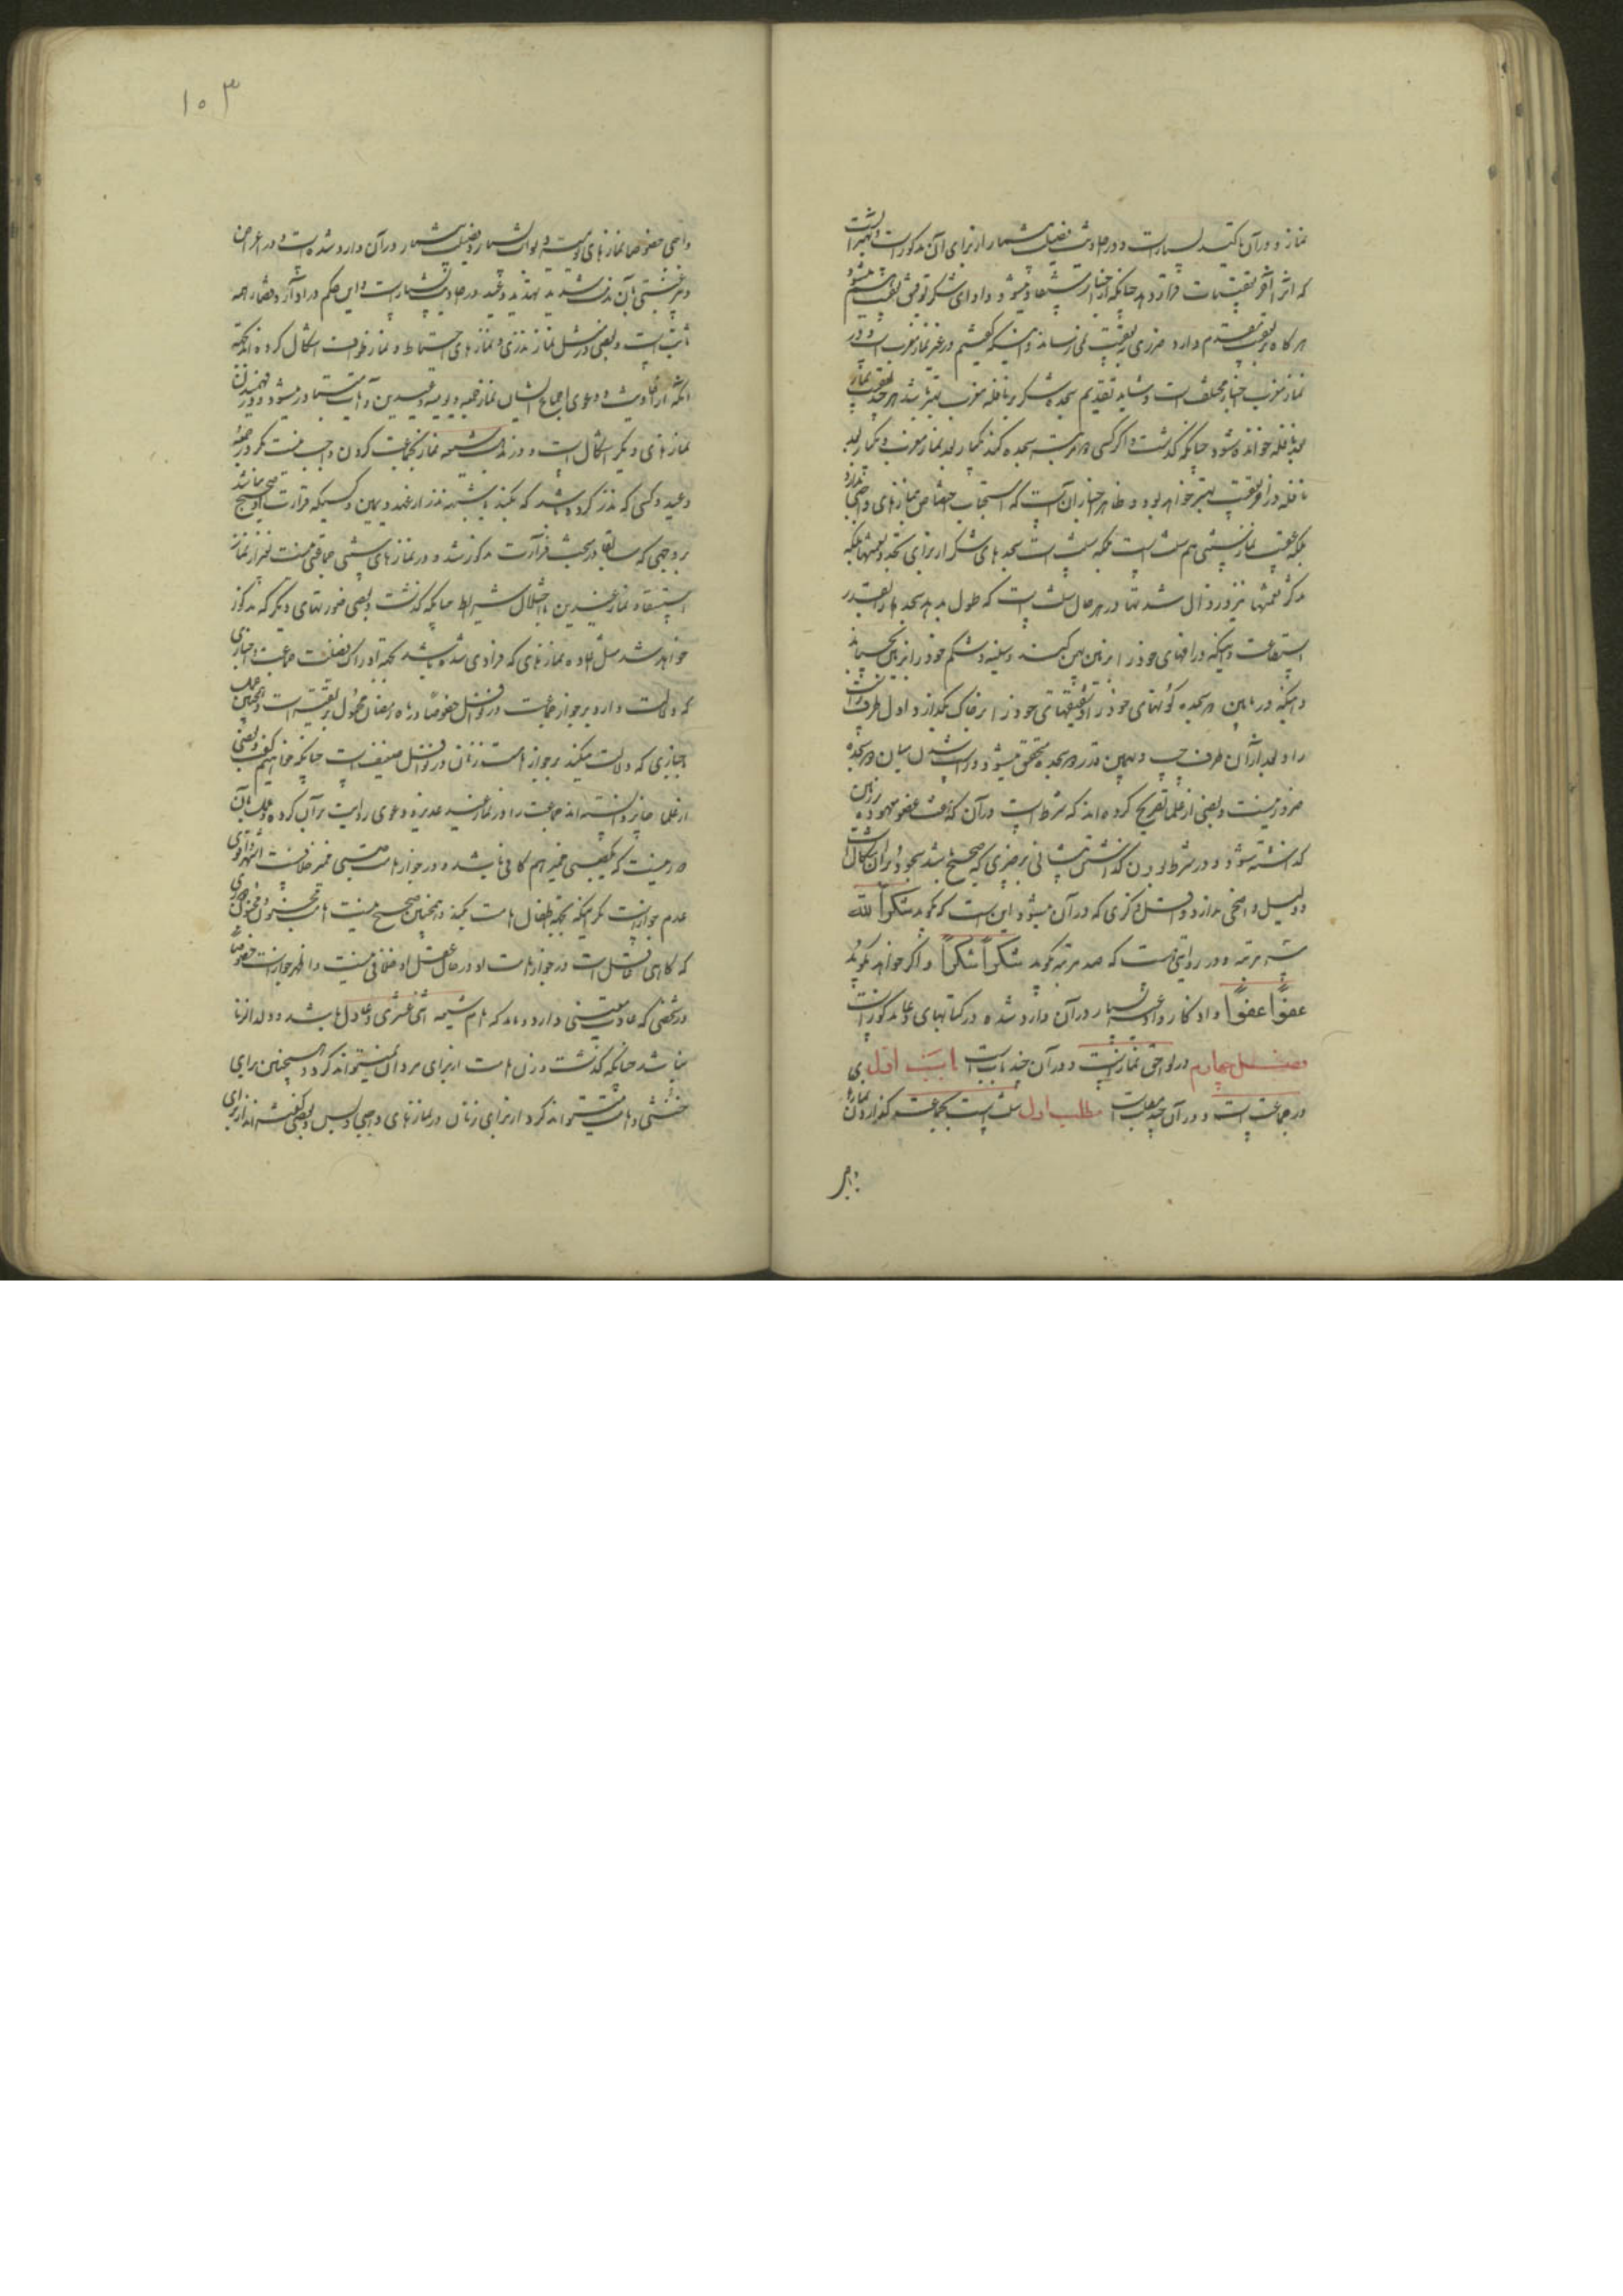 نماز و در آن تاکید بسیارست و در احادیث فضیلت بیشمار از برای آن مذکورست و بهتر آنست
که آنرا آخر تعقیبات قرار دهد چنانکه از اخبار مستفاد میشود و ادای شکر توفیق تعقیب هم میشود
هر گاه بر تعقیب مقدم دارد ضرری بتعقیب نمی رساند و اینکه گفتیم در غیر نماز مغرب است و در
نماز مغرب اخبار مختلف است و شاید تقدیم سجده شکر بر نافله مغرب بهتر باشد هر چند تعقیب نماز
بعد نافله خوانده شود چنانکه گذشت و اگر کسی دو مرتبه سجده کند یکبار بعد نماز مغرب و یکبار بعد
نافله در آخر تعقیب بهتر خواهد بود و ظاهر اخبار آن است که استحباب اختصاص بنمازهای واجبی ندارد
بلکه تعقیب نماز سنتی هم سنت است بلکه سنت است سجدهای شکر از برای تجدد نعمتها بلکه
تذکر نعمتها نیز و زوال شدتها و در هر حال سنت است که طول بدهد سجده را بقدر
استطاعت و اینکه ذراعهای خود را بر زمین پهن کند و سینه و شکم خود را بر زمین بچسباند
و اینکه در مابین دو سجده گونهای خود را و شقیقهای خود را بر خاک بگذارد اول طرف راست
را و بعد از آن طرف چپ و بهمین قدر دو سجده متحقق میشود و راست شدن میان دو سجده
ضرور نیست و بعضی از علما تصریح کرده اند که شرط است در آن که هفت عضو معهود بر زمین
گذاشته شود و در شرط بودن گذاشتن پیشانی بر چیزی که صحیح باشد سجود بر آن اشکال است
و دلیل واضحی ندارد و اقل ذکری که در آن میشود این است که بگوید شکراً لله
سه مرتبه و در روایتی هست که صد مرتبه بگوید شکراً شکراً و اگر خواهد بگوید
عفواً عفواً و اذکار و ادعیه بسیار در آن وارد شده در کتابهای دعا مذکورست
فصل چهارم در لواحق نمازست و در آن چند بابست باب اول
در جماعت است و در آن چند مطلب است مطلب اول سنت است بجماعت گذاردن نمازهای
واجبی خصوصا نمازهای یومیه و ثواب بسیار و فضیلت بیشمار در آن وارد شده است و در اعراض
و بی رغبتی بآن مذمت شدید و تهدید و وعید در احادیث بسیار است و این حکم در ادا و قضا همه
ثابت است و بعضی در مثل نماز نذری و نمازهای احتیاط و نماز طواف اشکال کرده اند بجهة
آنکه از احادیث و دعوی اجماع ایشان نماز جمعه و یومیه و عیدین و آیات متبادر میشود و در فهمیدن
نمازهای دیگر اشکال است و در مذهب شیعه نماز بجماعت کردن واجب نیست مگر در جمعه
و عید و کسی که نذر کرده باشد که بکند یا شبیه نذر از عهد و یمین و کسیکه قرائت او صحیح نباشد
بر وجهی که سابقا در بحث قرائت مذکور شد و در نمازهای سنتی جماعتی نیست بغیر از نماز
استسقاء و نماز عیدین با اختلال شرایط چنانکه گذشت و بعضی صورتهای دیگر که مذکور
خواهد شد مثل اعاده نمازهای که فرادی شده باشد بجهة ادراک فضیلت جماعت و اخباری
که دلالت دارد بر جواز جماعت در نوافل خصوصا در ماه رمضان محمول بر تقیه است و همچنین
اخباری که دلالت میکند بر جواز امامت زنان در نوافل ضعیف است چنانکه خواهیم گفت و بعضی
از علما جایز دانسته اند جماعت را در نماز عید غدیر و دعوی روایت بر آن کرده و عمل بآن
دور نیست که بی خیر هم کافی باشد و در جواز امامت صبی ممیز خلافست اشهر و اقوی
عدم جوازست مگر اینکه بجهة اطفال امامت بکند و همچنین صحیح نیست امامت مجنون و مجنونی
که گاهی عاقل است در جواز امامت او در حال عقل او خلافی نیست و اظهر جوازست خصوصا
در شخصی که عادت معینی دارد و باید که امام شیعه اثنی عشری و عادل باشد و ولد الزنا
نباشد چنانکه گذشت و زن امامت از برای مردان نمیتواند کرد و همچنین برای
خنثی و امامت میتواند کرد از برای زنان در نمازهای واجبی و بس و بعضی گفته اند از برای